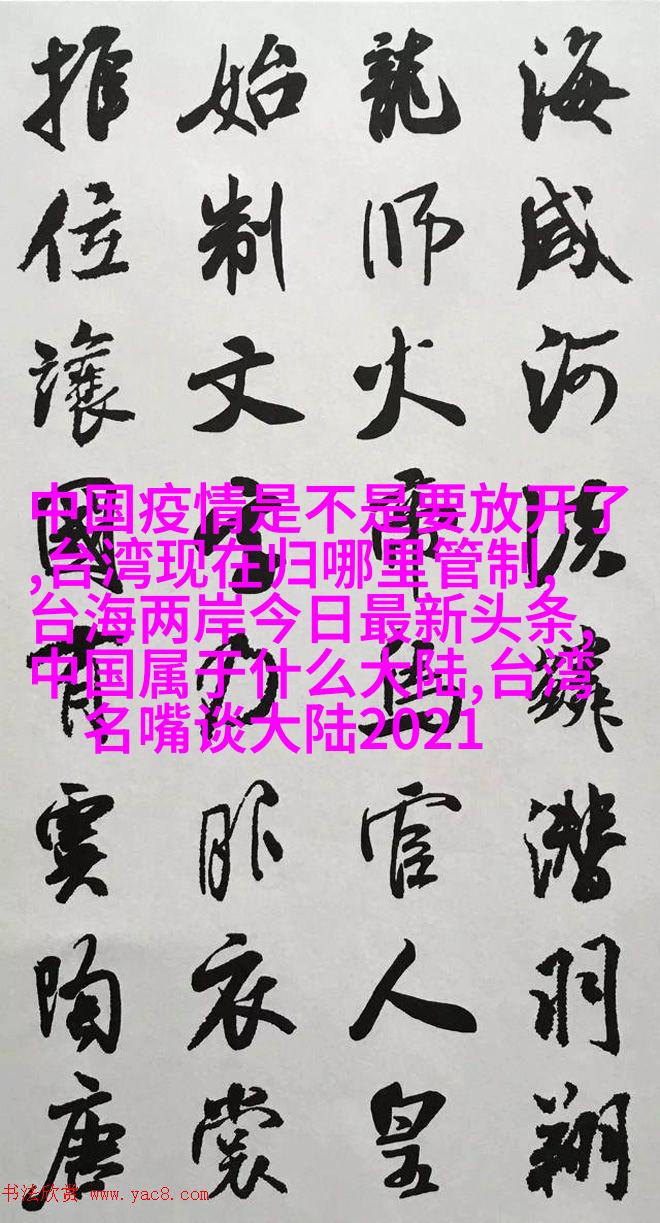 海咸河淡鱗潜羽翔
龍师火帝鳥官人皇
始制文字乃服衣裳
推位讓國有虞陶唐
中国疫情是不是要放开了
,台湾现在归哪里管制,
台海两岸今日最新头条,
中国属于什么大陆,台湾
名嘴谈大陆2021
书法欣赏 www.yac8.com